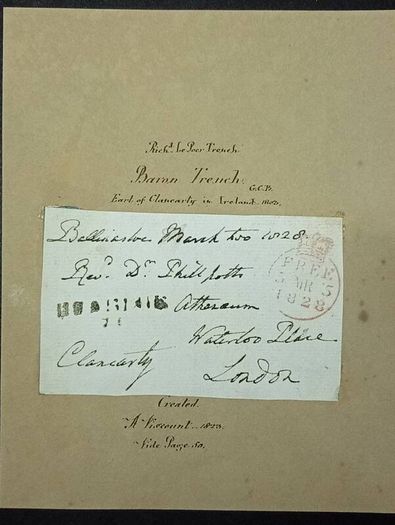 Rich.d Le Poer Trench
Baron Trench.
G.C.B.
Earl of Clancarty in Ireland 1803.
Ballinasloe March two 1828
Rev.d D.r Phillpotts
Athenaeum
Waterloo Place
Clancarty
London
FREE
5 MR 5
1828
Created.
A Viscount – 1823.
Vide Page 50.